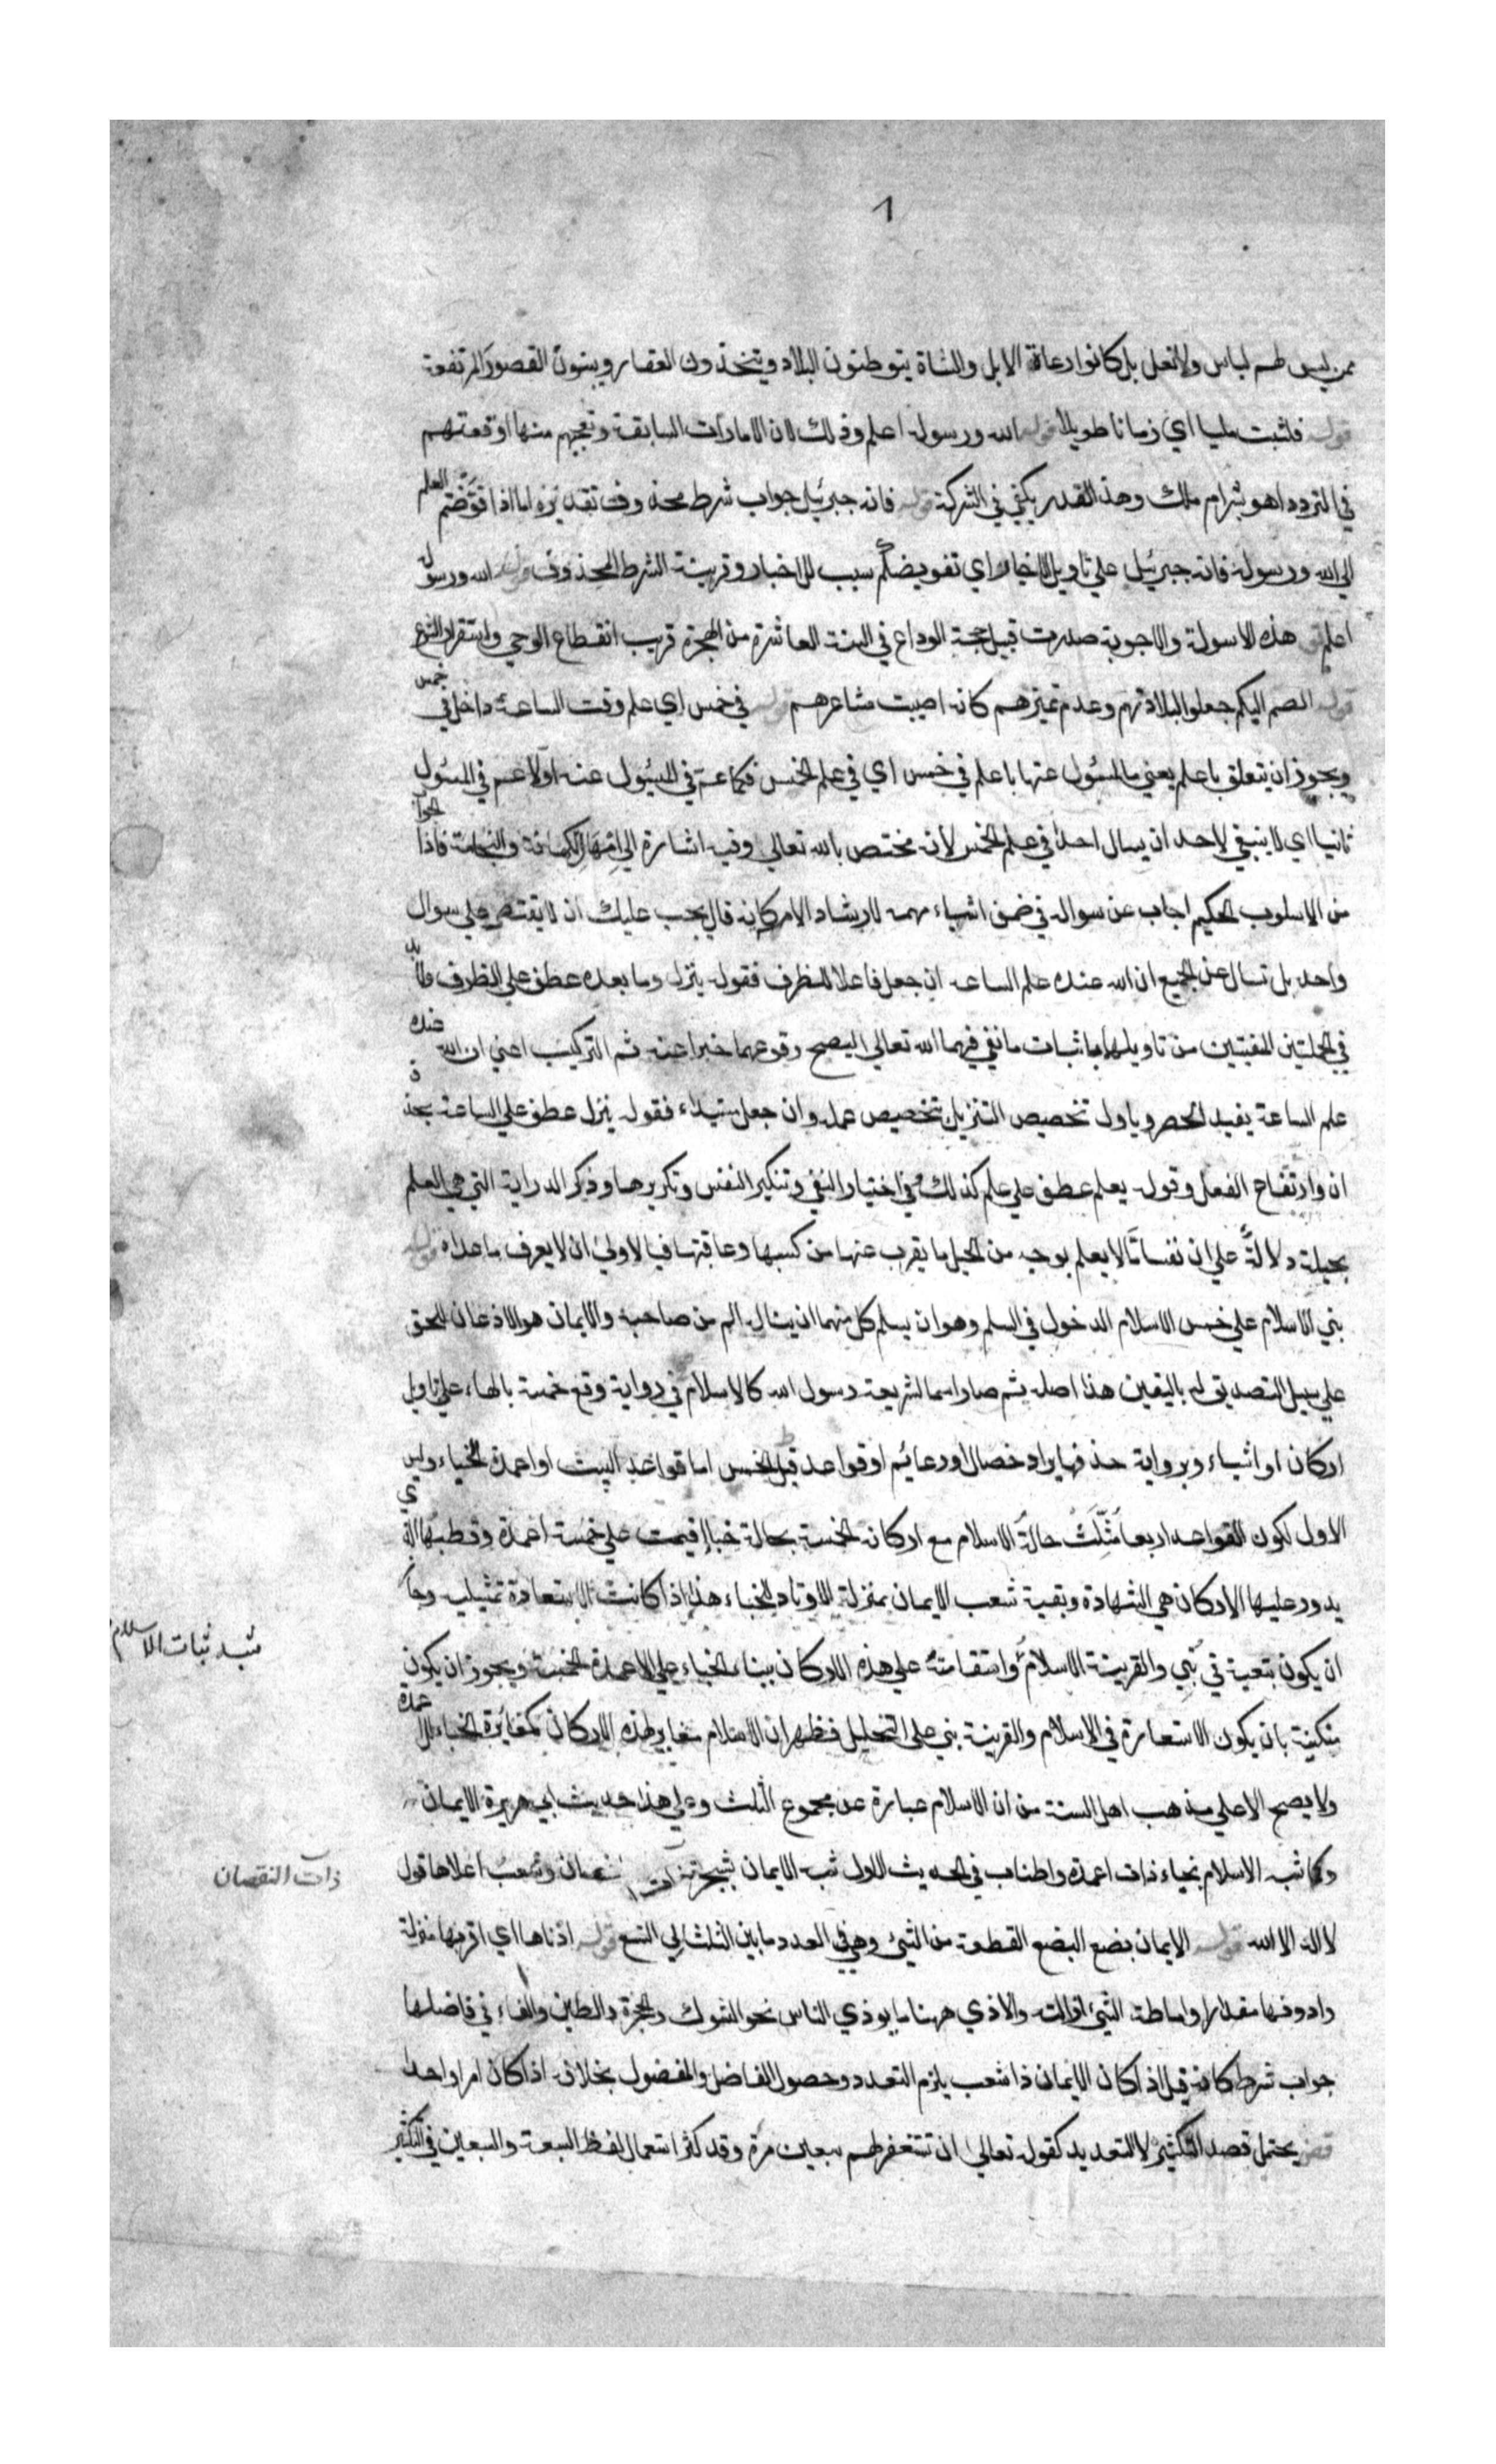 1
ممن ليس لهم لباس ولا نعل بل كانوا رعاة الابل والشاة يتوطنون البلاد ويتخذون العقار ويبنون القصور المرتفعة
قوله فلبثت مليا اي زمانا طويلا قوله الله ورسوله اعلم وذلك لان الامارات السابقة وتعجبهم منها اوقعتهم
في التردد اهو بشر ام ملك وهذا القدر يكفي في الشركة قوله فانه جبرئيل جواب شرط محذوف تقديره اما اذا فوضتم العلم
الي الله ورسوله فانه جبرئيل علي تاويل الاخبار اي تفويضكم سبب للاخبار وقرينة الشرط المحذوف قوله الله ورسوله
اعلم هذه الاسولة والاجوبة صدرت قبيل حجة الوداع في السنة العاشرة من الهجرة قريب انقطاع الوحي واستقرار الشرع
قوله الصم البكم جعلوا لبلادتهم وعدم تميزهم كانه اصيبت مشاعرهم قوله في خمس اي علم وقت الساعة داخل في خمس
ويجوز ان يتعلق باعلم يعني ما المسئول عنها باعلم في خمس اي في علم الخمس فكما عم في المسئول عنه اولا عم في المسئول
ثانيا اي لا ينبغي لاحد ان يسال احدا في علم الخمس لانه مختص بالله تعالي وفيه اشارة الي الكهانة والنجامة فاذا الجواب
من الاسلوب الحكيم اجاب عن سواله في ضمن اشياء مهمة لارشاد الامة كانه قال يجب عليك ان لا يقتصر علي سوال
واحد بل تسال عن الجميع ان الله عنده علم الساعة ان جعل فاعلا للظرف فقوله ينزل وما بعده عطف علي الظرف فلا بد
في الجملتين المنفيتين من تاويلهما باثبات ما نفي فيهما الله تعالي ليصح وقوعهما خبرا عنه ثم التركيب اعني ان الله عنده
علم الساعة يفيد الحصر وياول تخصيص التنزيل بتخصيص علمه وان جعل مبتداء فقوله ينزل عطف علي الساعة بحذف
ان وارتفاع الفعل وقوله يعلم عطف علي علم كذلك وفي اختيار النفي وتنكير النفس وتكريرها وذكر الدراية التي هي العلم
بحيلة دلالةً علي ان نفسا ما لا يعلم بوجه من الحيل ما يقرب عنها من كسبها وعاقبتها فبالاولي ان لا يعرف ما عداه قوله
بني الاسلام علي خمس الاسلام الدخول في السلم وهو ان يسلم كل منهما ان يناله الم من صاحبه والايمان هو الاذعان للحق
علي سبيل التصديق له باليقين هذا اصله ثم صار اسما لشريعة رسول الله كالاسلام في رواية وقع خمسة بالهاء علي تاويل
اركان او اشياء وبرواية حذفها يراد خصال او دعائم او قواعد قيل الخمس اما قواعد البيت او اعمدة الخباء وليس
الاول لكون القواعد اربعا مُثِّلَتْ حالةُ الاسلام مع اركانه الخمسة بحالة خباء اقيمت علي خمسة اعمدة وقطبها الذي
يدور عليها الاركان هي الشهادة وبقية شعب الايمان بمنزلة الاوتاد للخباء هذا اذا كانت الاستعارة تمثيلية وجاز
ان يكون تبعية في بُنِي والقرينة الاسلامُ واستقامتُه علي هذه الاركان ببناء الخباء علي الاعمدة الخمسة ويجوز ان يكون
شبه ثبات الاسلام
مكنية بان يكون الاستعارة في الاسلام والقرينة بني علي التخييل فظهر ان الاسلام مغاير لهذه الاركان كمغايرة الخباء للاعمدة
ولا يصح الا علي مذهب اهل السنة من ان الاسلام عبارة عن مجموع الثلث وعلي هذا حديث ابي هريرة الايمان
وكما شبه الاسلام بخباء ذات اعمدة واطناب في الحديث الاول شبه الايمان بشجرة وشعب اعلاها قول
ذات النقصان
لا اله الا الله قوله الايمان بضع البضع القطعة من الشيئ وهي في العدد ما بين الثلث الي التسع قوله ادناها اي اقربها منزلة
وادونها مقدارا واماطة الشيئ ازالته والاذي ههنا ما يوذي الناس نحو الشوك والحجر والطين والفاء في فافضلها
جواب شرط كانه قيل اذا كان الايمان ذا شعب يلزم التعدد وحصول الفاضل والمفضول بخلاف اذا كان امرا واحدا
قض يحتمل قصد التكثير لا التعديد كقوله تعالي ان تستغفر لهم سبعين مرة وقد كثر استعمال لفظ السبعة والسبعين في التكثير